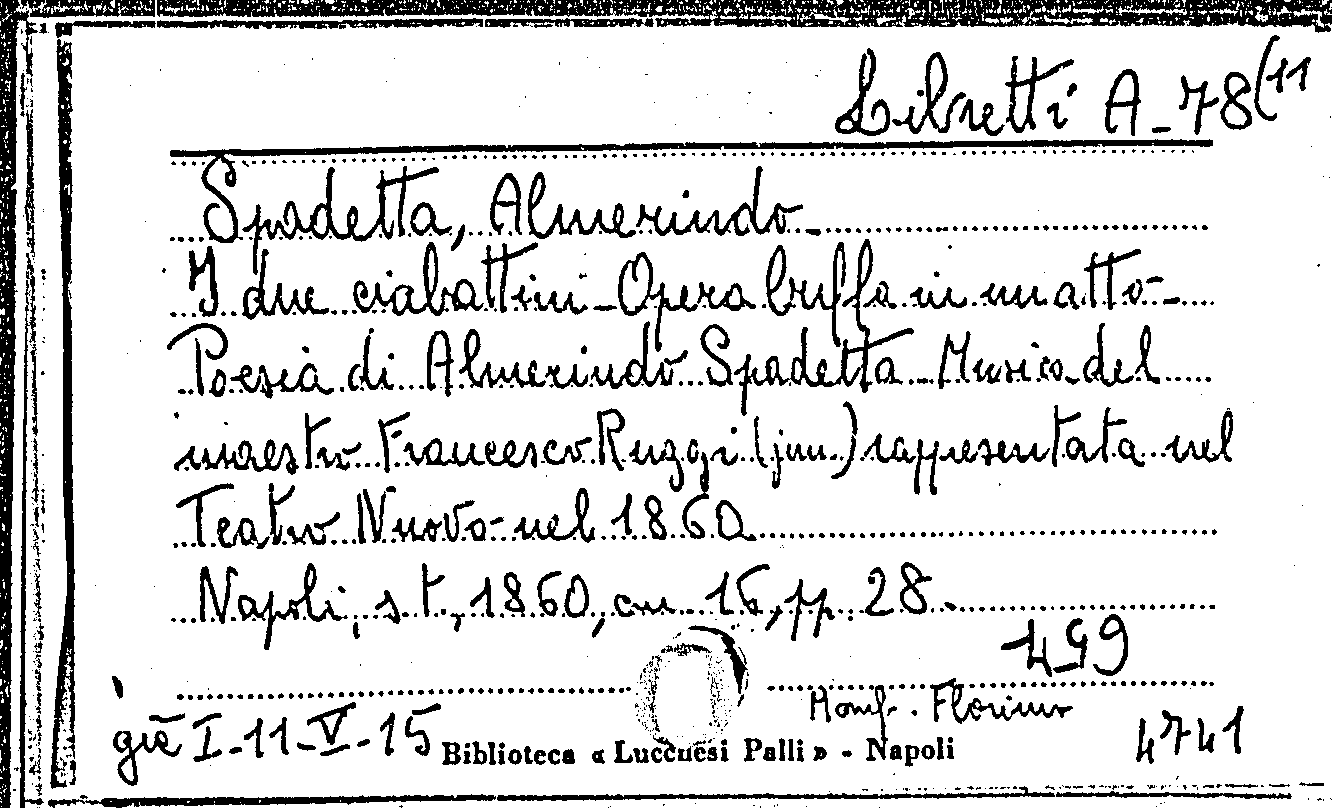 Libretti A-78(11
Spadetta, Almerindo-
I due ciabattini-Opera buffa in un atto-
Poesia di Almerindo Spadetta-Musica del
maestro Francesco Ruggi (jun.) rappresentata nel
Teatro Nuovo nel 1860
Napoli, s.t., 1860, cm. 16, pp. 28.
499
Manf. Florimo
già I-11-V-15
Biblioteca « Lucchesi Palli » - Napoli
4741